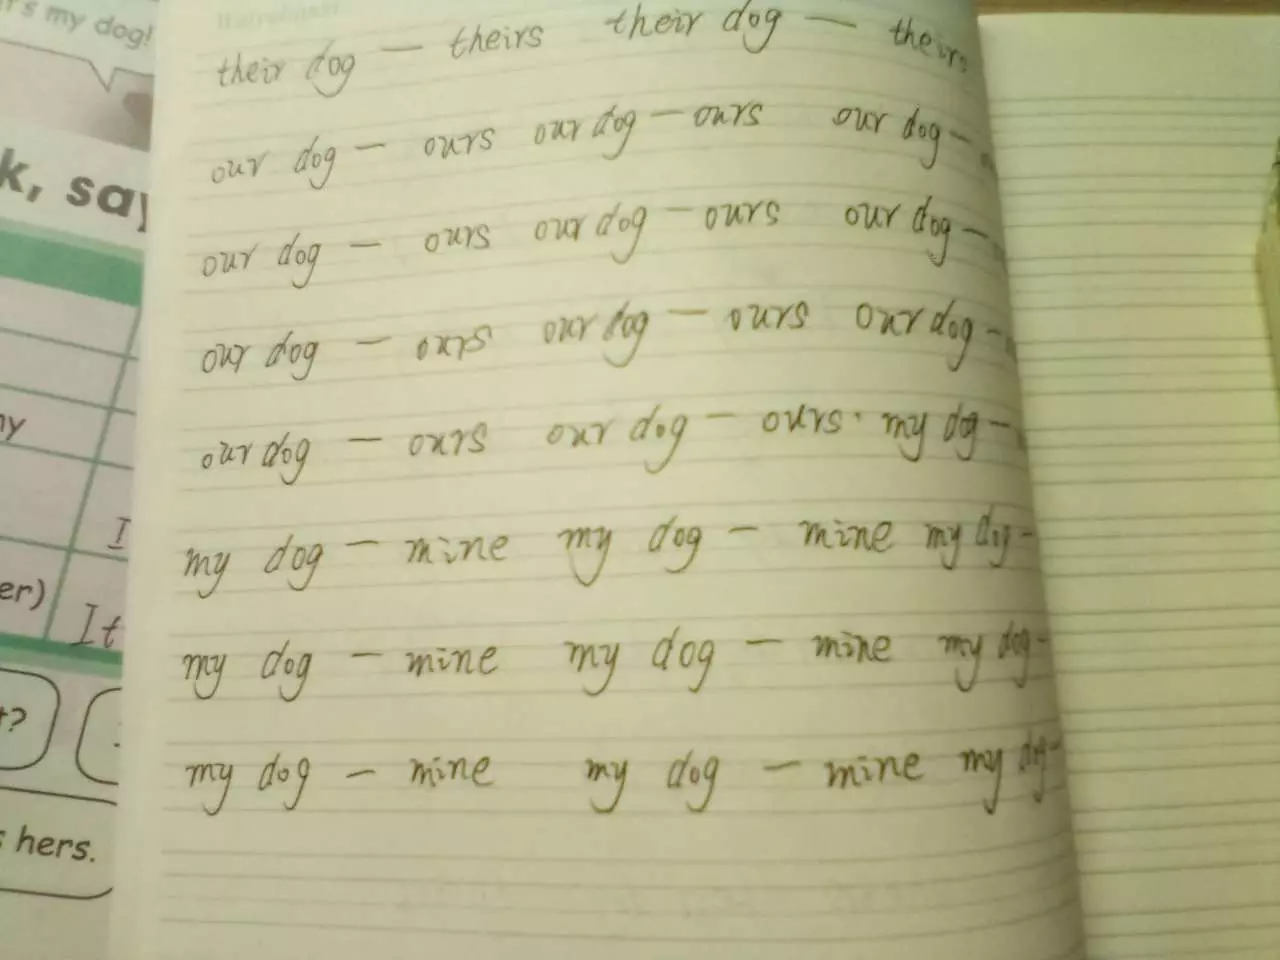 's my dog!
k, say
I
er)
It
t?
hers.
their dog — theirs their dog — theirs
our dog — ours our dog — ours our dog —
our dog — ours our dog — ours our dog —
our dog — ours our dog — ours our dog —
our dog — ours our dog — ours. my dog —
my dog — mine my dog — mine my dog —
my dog — mine my dog — mine my dog —
my dog — mine my dog — mine my dog —